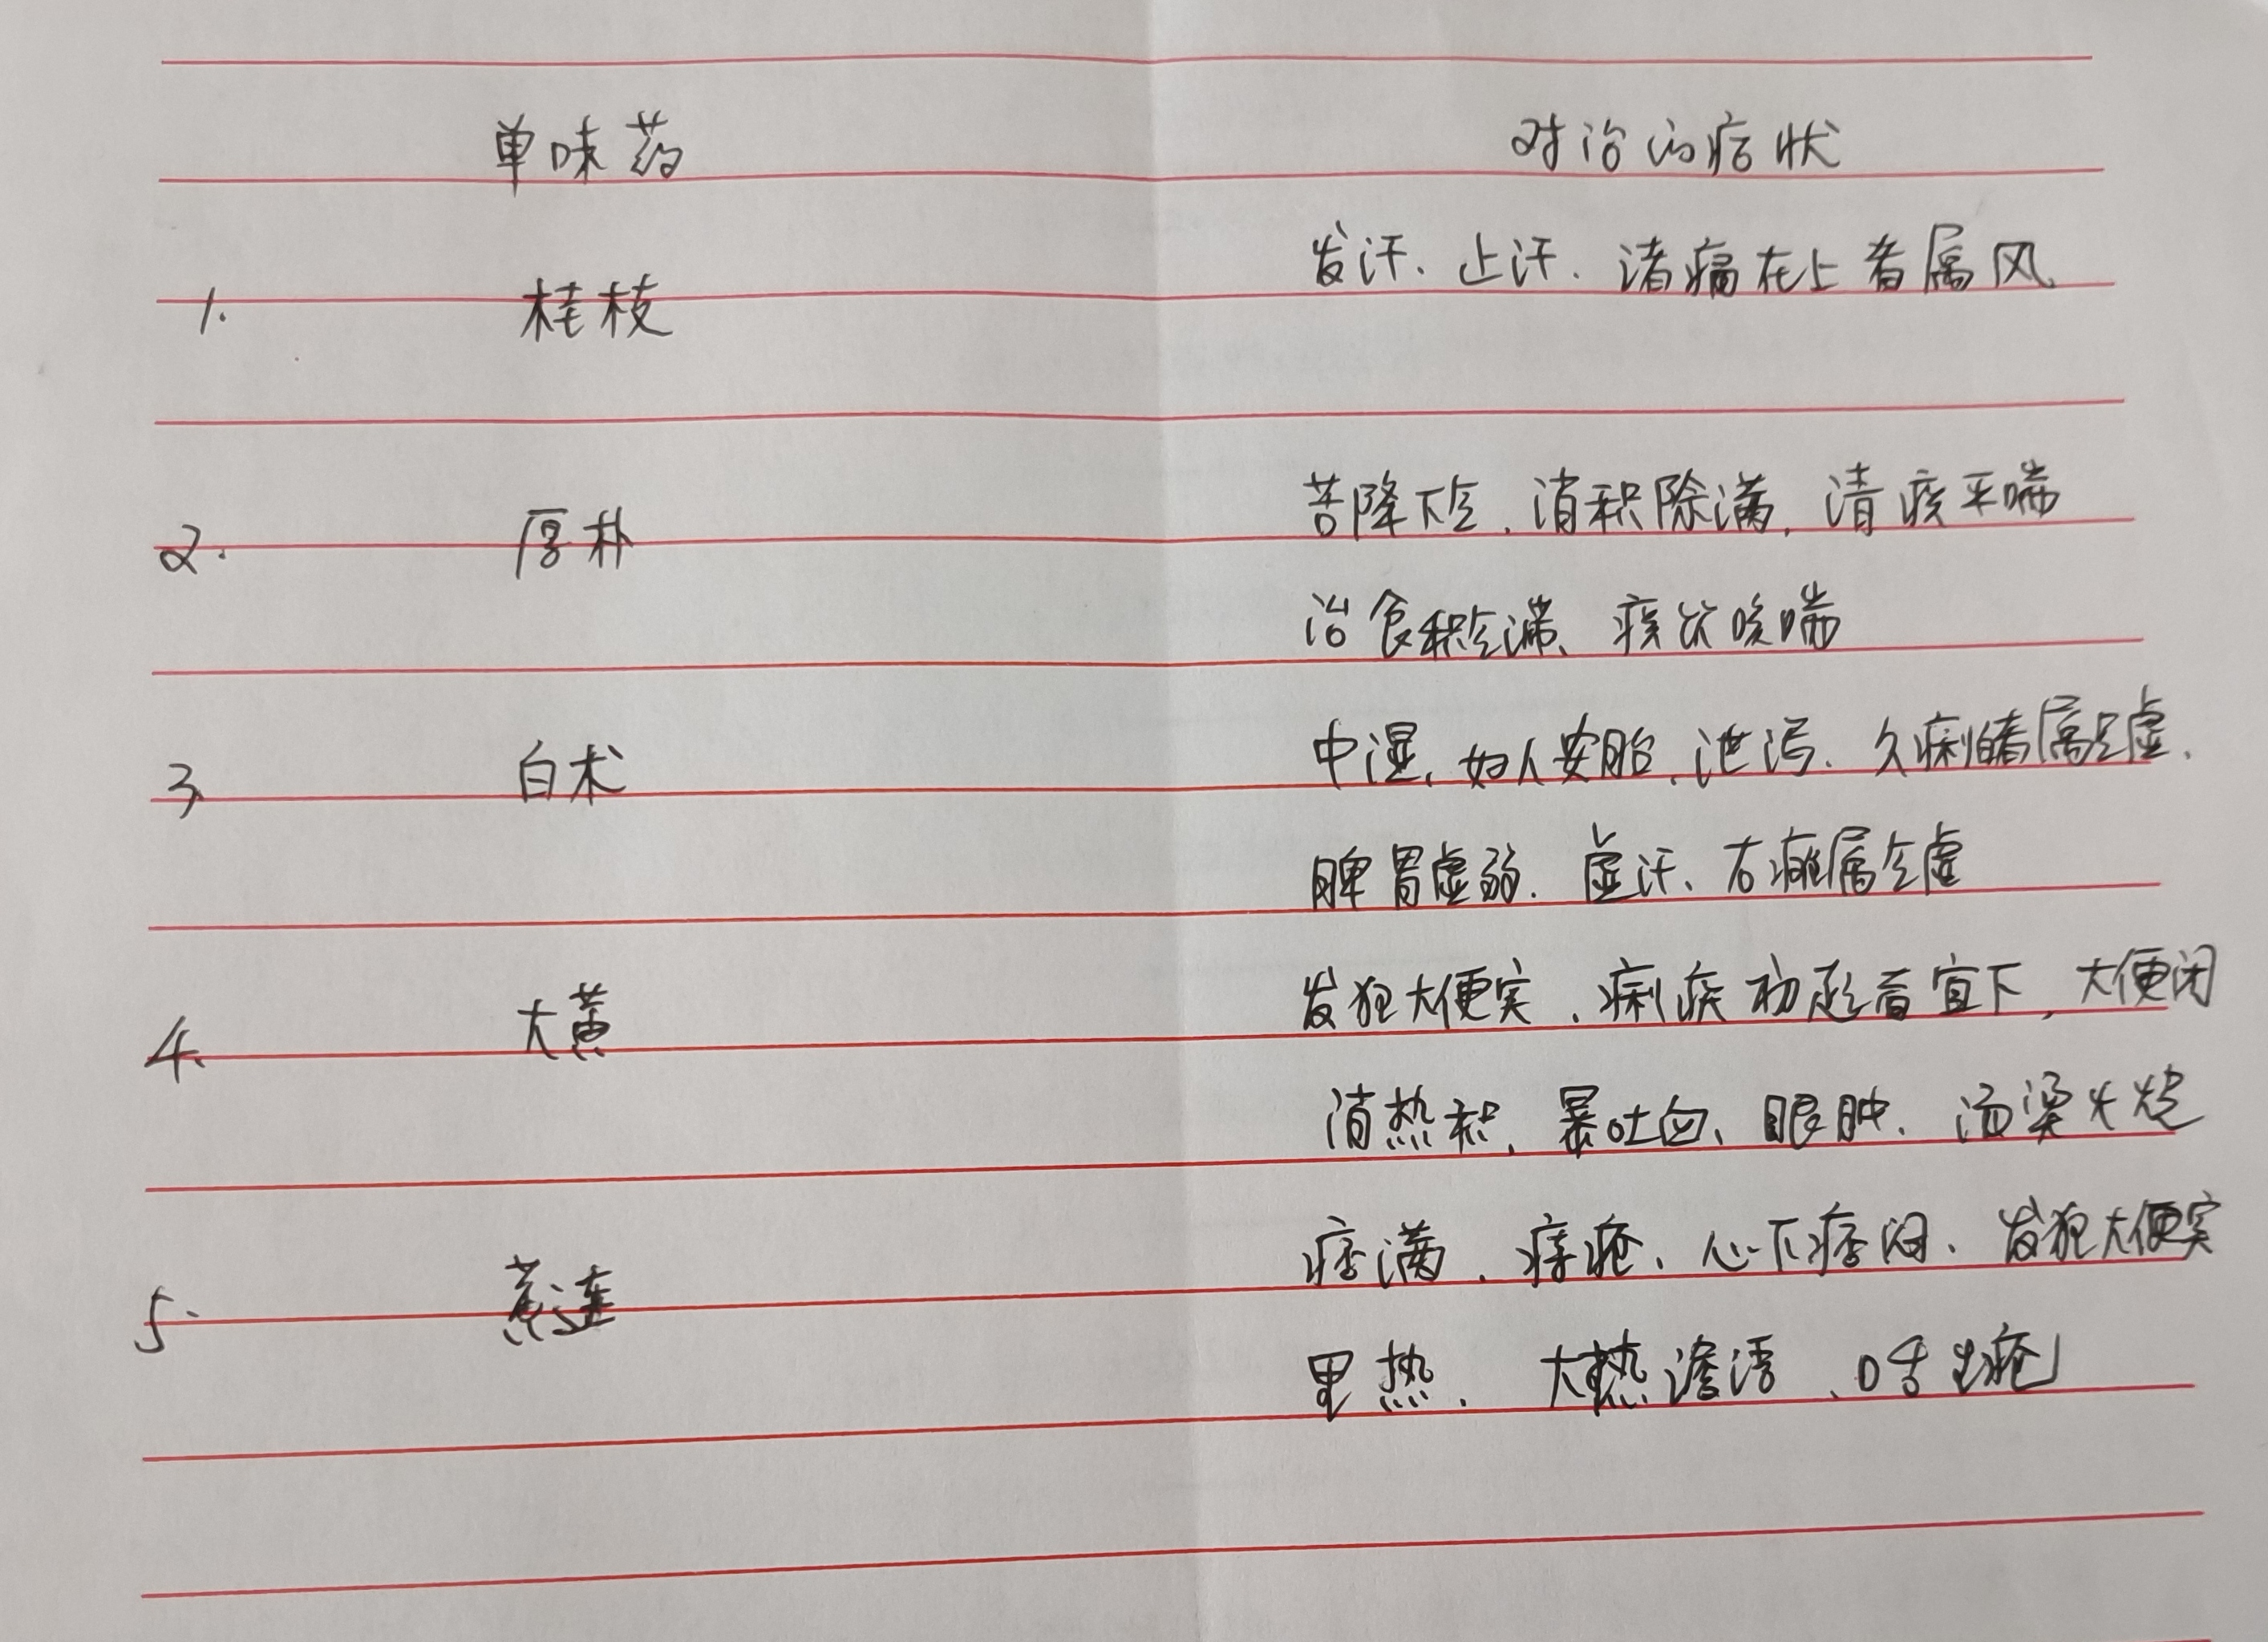 单味药 对治的病状
发汗、止汗、诸痛在上者属风
1. 桂枝
苦降下气、消积除满、清痰平喘
2. 厚朴
治食积气滞、痰饮咳喘
中湿、妇人安胎、泄泻、久痢者属气虚、
3. 白术
脾胃虚弱、虚汗、右瘫属气虚
发狂大便实、痢疾初起者宜下、大便闭
4. 大黄
消热积、暴吐血、眼肿、汤烫火烧
痞满、痔疮、心下痞闷、发狂大便实
5. 黄连
里热、大热谵语、口舌生疮